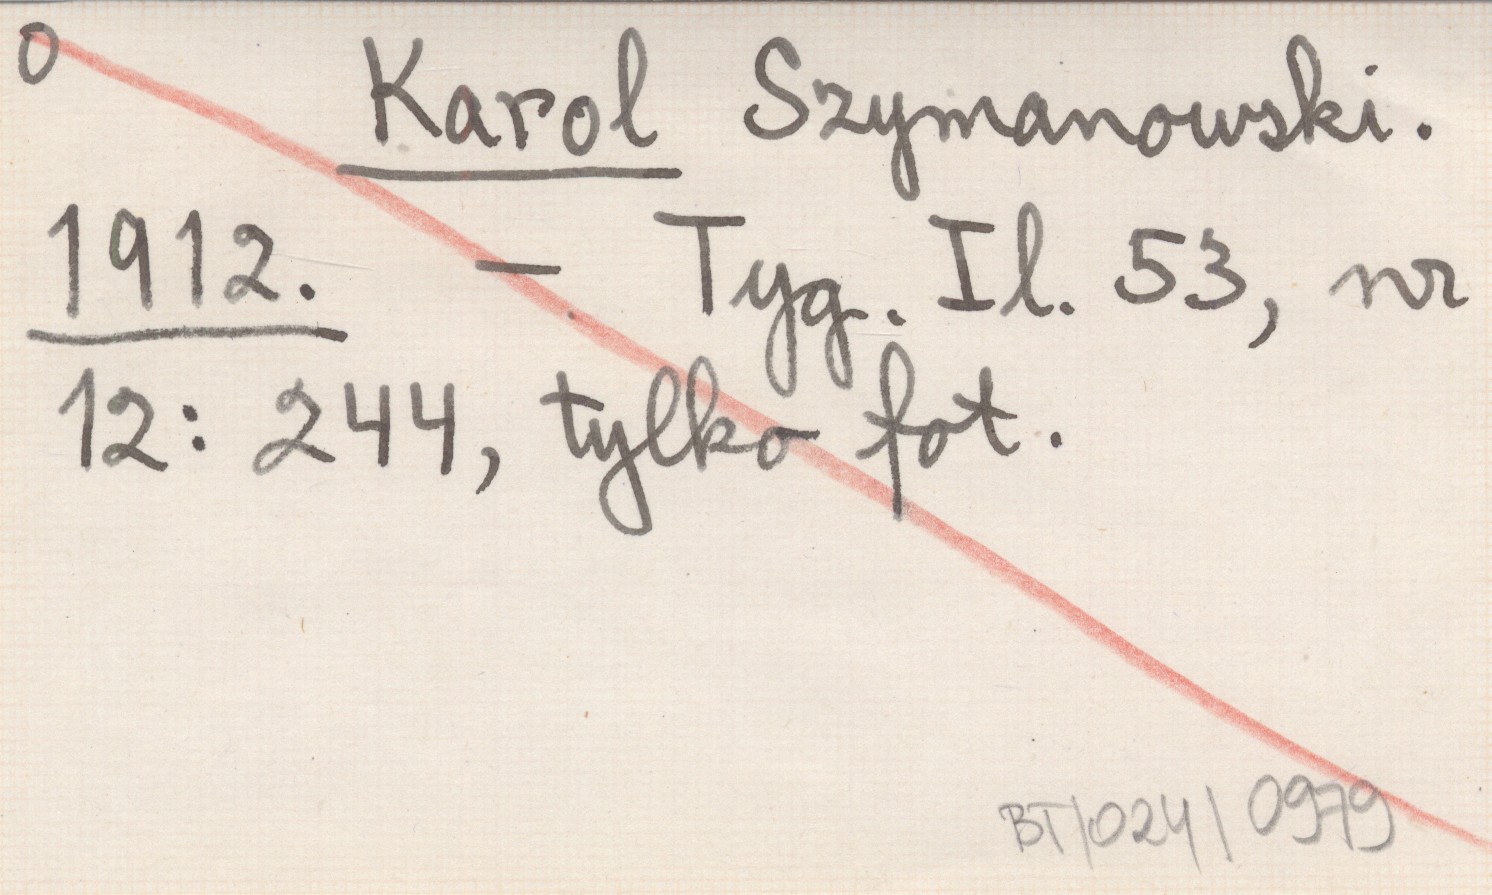 0
Karol Szymanowski.
1912. — Tyg. Il. 53, nr
12: 244, tylko fot.
BT/024/0979